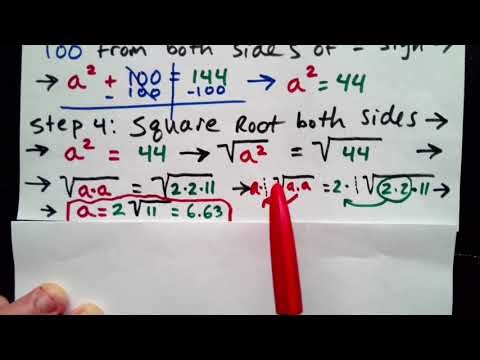 100 from both sides of = sign →
→ a² + 100 = 144 → a² = 44
- 100 -100
Step 4: Square Root both sides →
→ a² = 44 → √a² = √44
→ √a·a = √2·2·11 → a·√a·a = 2·√2·2·11 →
→ a = 2√11 = 6.63